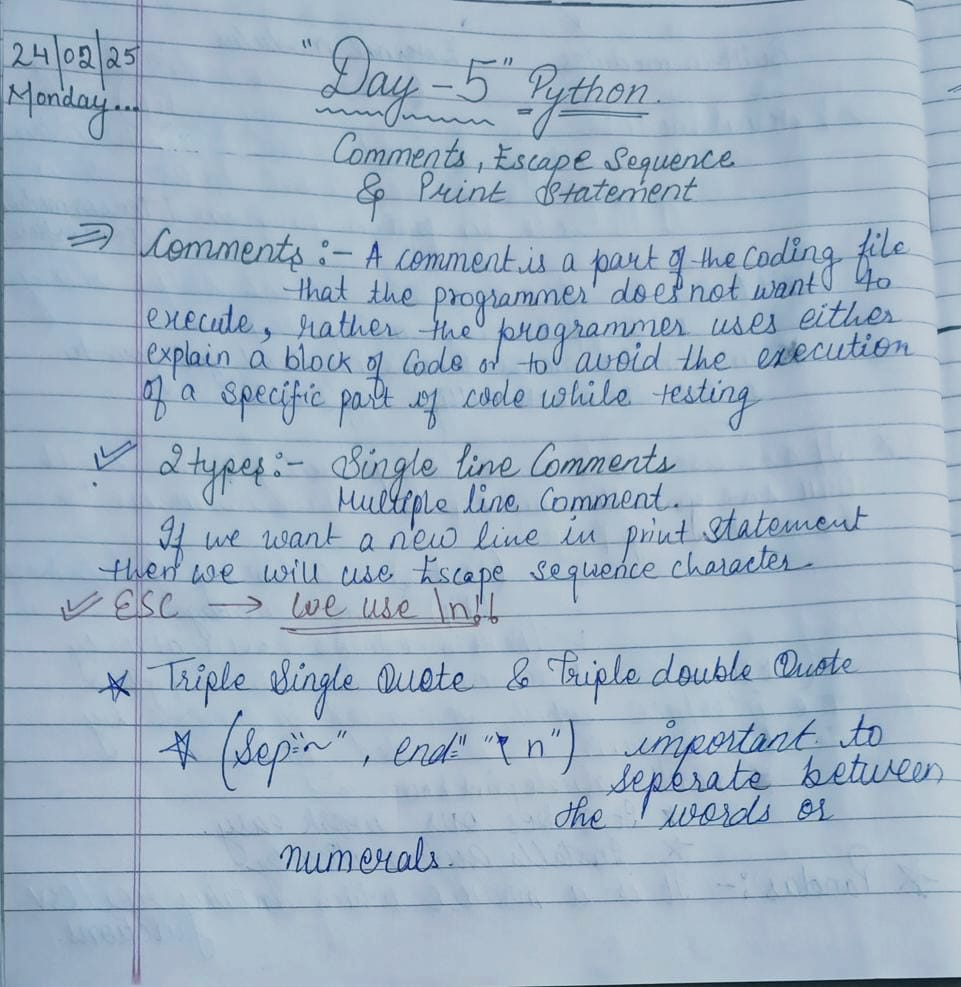 24/02/25
Monday...
"Day - 5" Python.
Comments, Escape Sequence
& Print Statement
⇒ Comments :- A comment is a part of the coding file
that the programmer does not want to
execute, rather the programmer uses either
explain a block of Code or to avoid the execution
of a specific part of code while testing
✓ 2 types :- Single line Comments
Multiple line Comment.
If we want a new line in print statement
then we will use Escape sequence character.
✓ ESC → we use \n!!
☆ Triple Single Quote & Triple double Quote
☆ (Sep="~", end=" "\n") important to
seperate between
the words or
numerals.